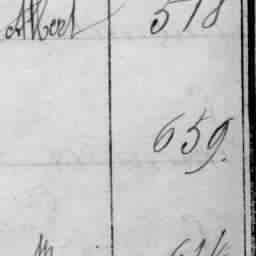 Albert 518
659.